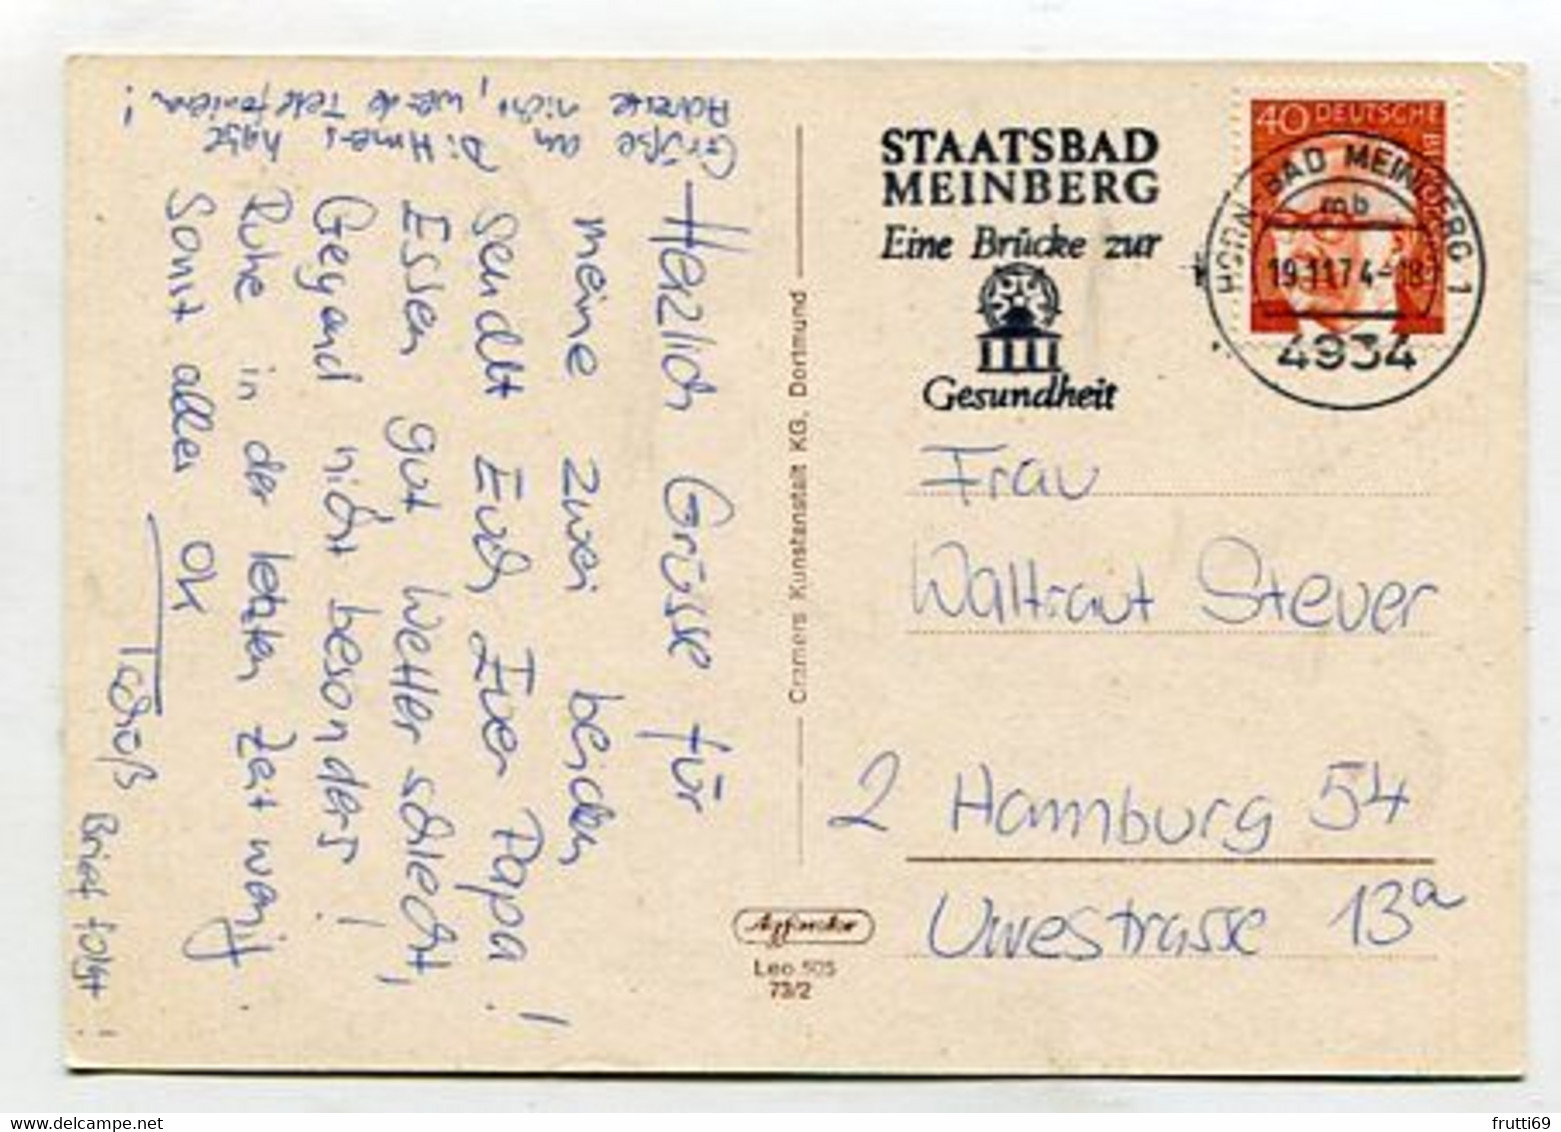 STAATSBAD
MEINBERG
Eine Brücke zur
Gesundheit
40 DEUTSCHE
HORN-BAD MEINBERG 1
mb
19.11.74-18
4934
Frau
Waltraut Stever
2 Hamburg 54
Uwestrasse 13a
Cramers Kunstanstalt KG, Dortmund
Leo 505
73/2
Herzlich Grüsse für
meine zwei beiden
sendet Euch Euer Papa!
Essen gut Wetter schlecht,
Gegend nicht besonders!
Ruhe in der letzten Zeit wenig
Sonst alles OK
Tschüß
Brief folgt!
Grüße an Dithmers habe
Adresse nicht, werde Telefonieren!
frutti69